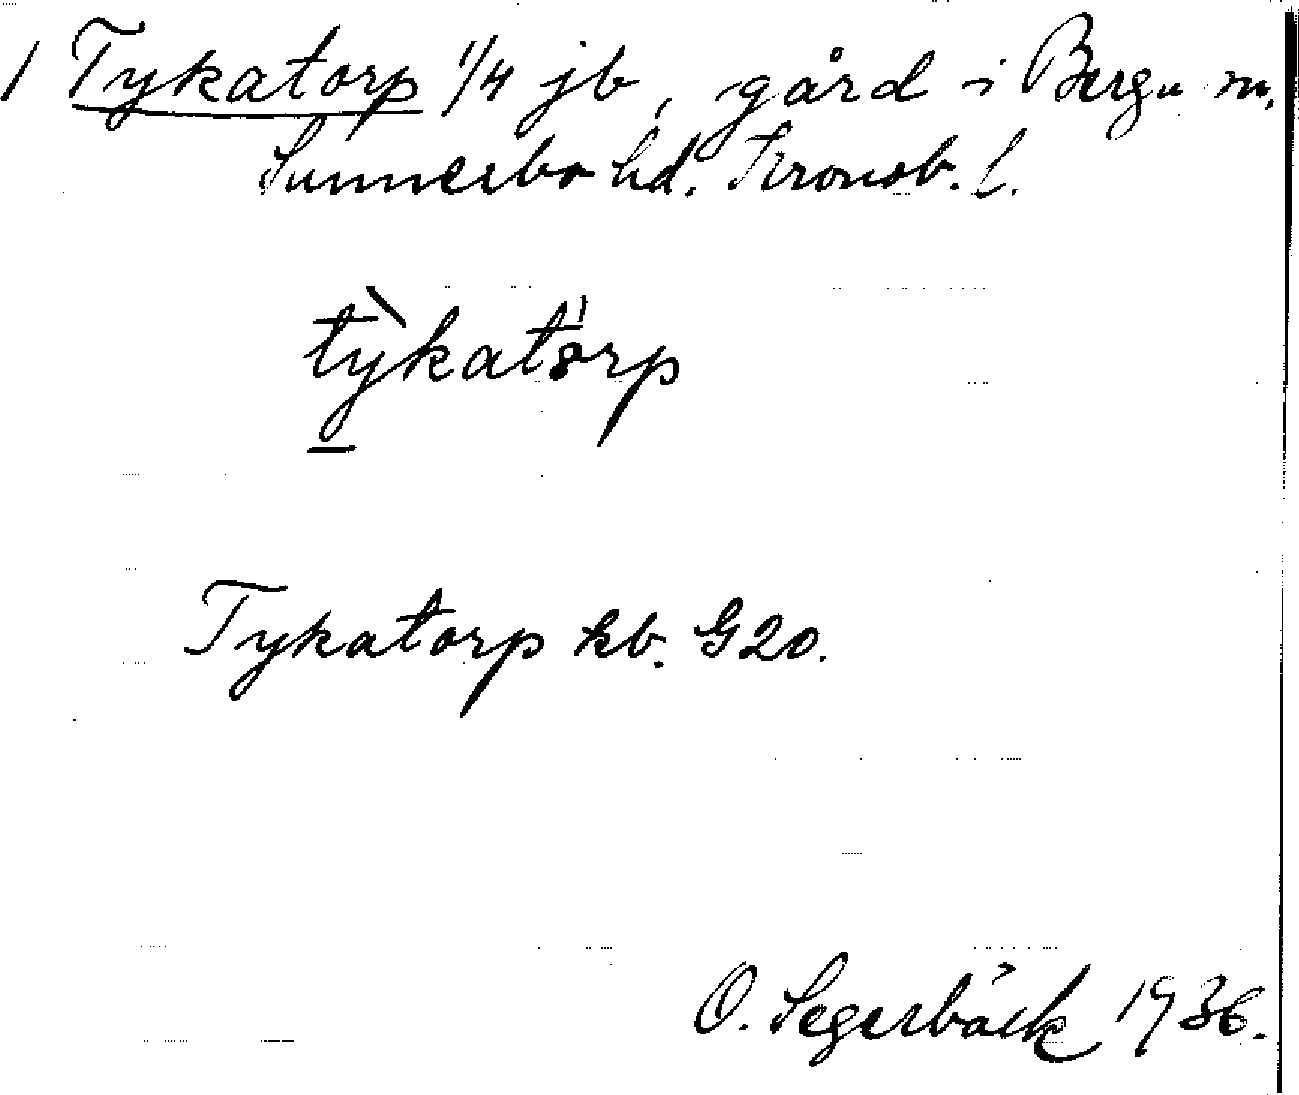 1 Tykatorp 1/4 jb, gård i Berga sn,
Sunnerbo hd. Kronob. l.
tỳ̠katorp
Tykatorp kb. G20.
O. Segerbäck 1936.